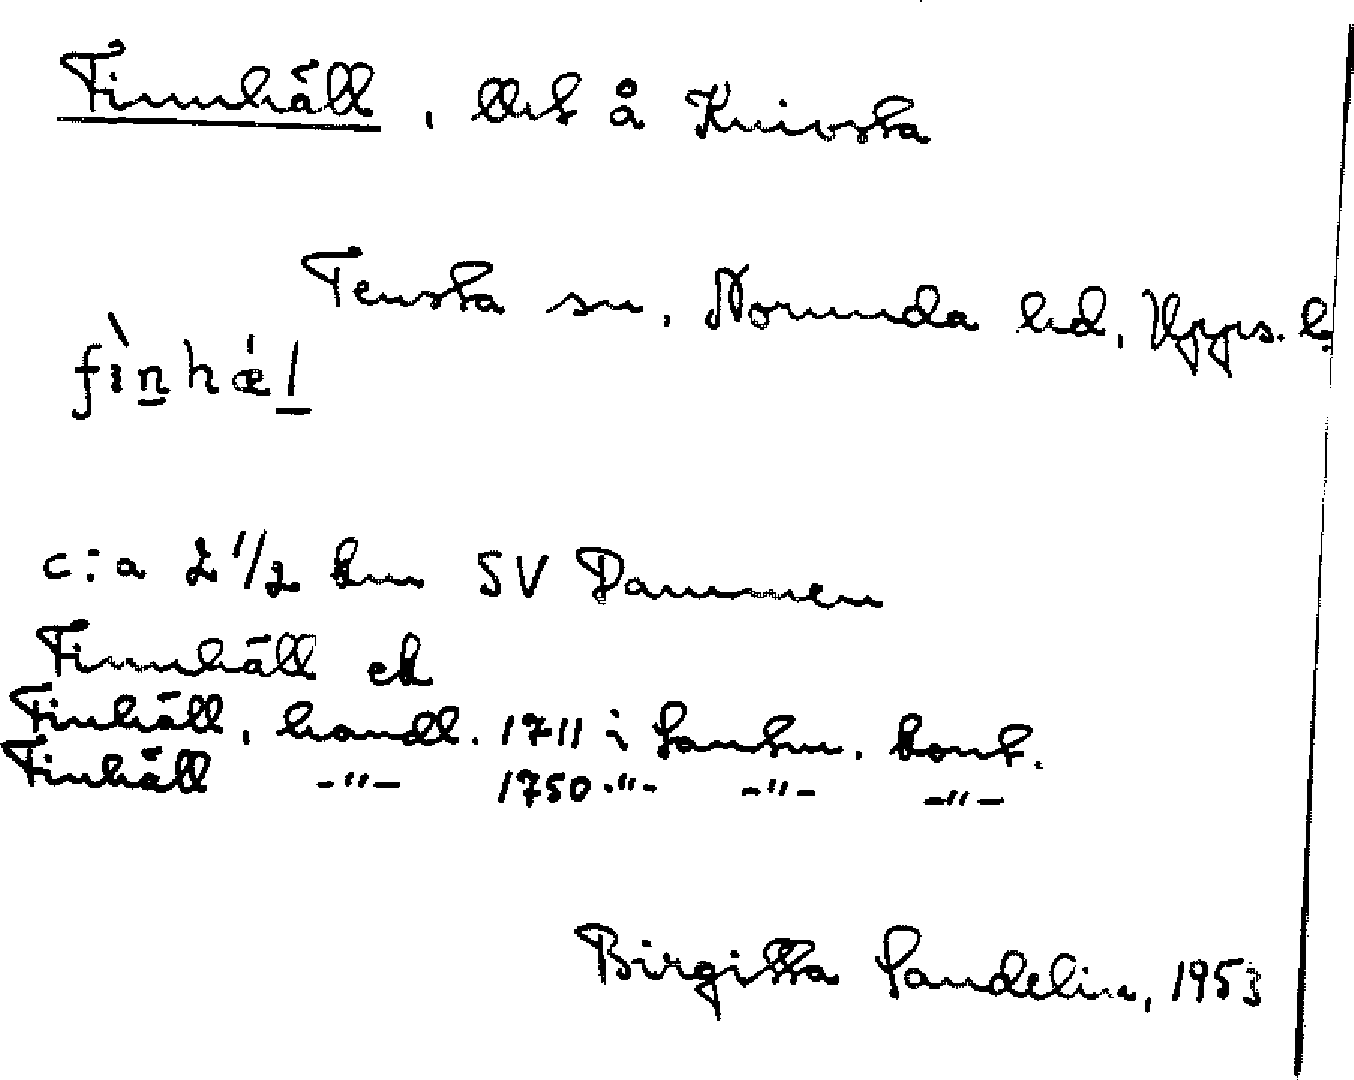 Finnhäll, tht å Knivsta
Tensta sn, Norunda hd, Upps. l.
fìn̲hǽl̲
c:a 2 1/2 km SV Dammen
Finnhäll ek
Finhäll, handl. 1711 i Lantm. kont.
Finhäll -"- 1750 -"- -"- -"-
Birgitta Sandelin, 1953